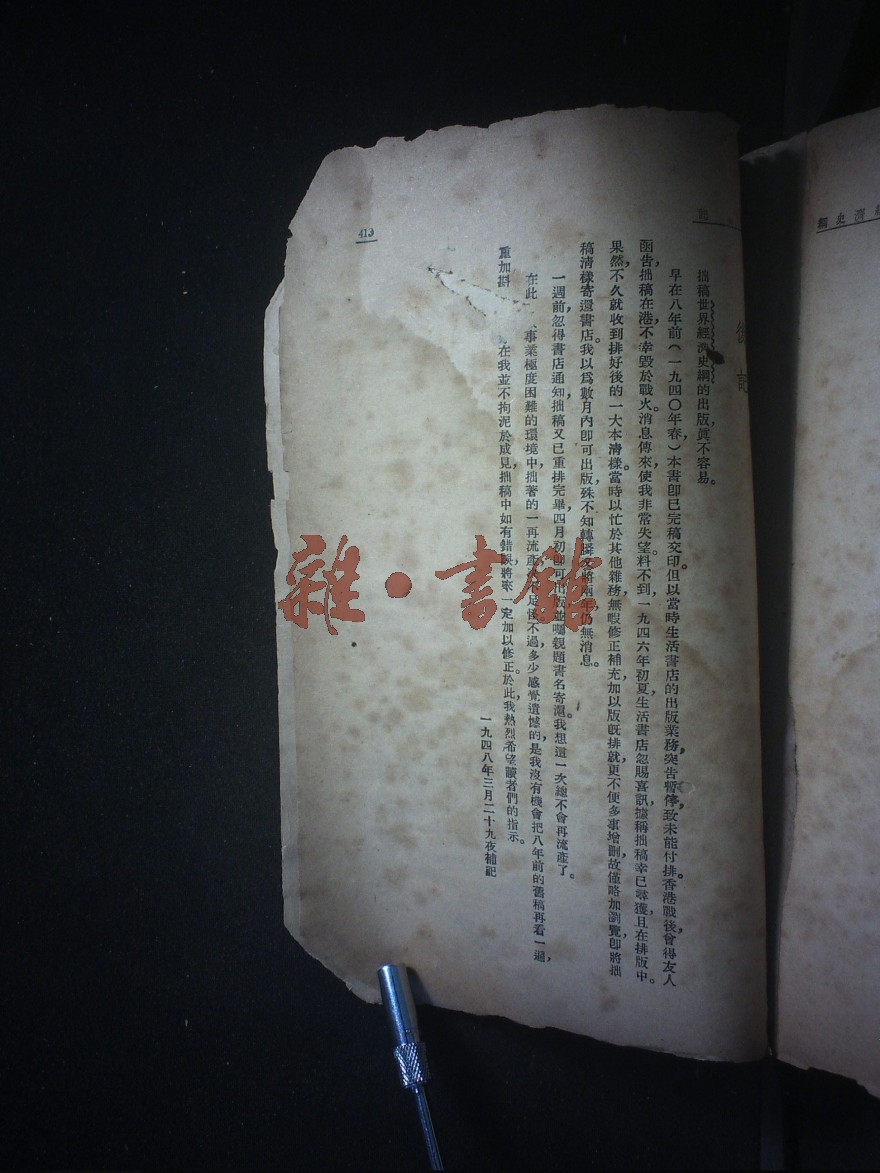 經濟史綱
後記
拙稿世界經濟史綱的出版，眞不容易。
早在八年前（一九四〇年春）本書卽已完稿交印但以當時生活書店的出版業務，突告暫停，致未能付排。香港戰後，曾得友人
函告，拙稿在港，不幸毀於戰火。消息傳來，使我非常失望。料不到，一九四六年初夏，生活書店忽賜喜訊，據稱拙稿幸已尋獲，且在排版中。
果然，不久就收到排好後的一大本淸樣。當時以忙於其他雜務，無暇修正補充，加以版旣排就，更不便多事增刪，故僅略加瀏覽，卽將拙
稿淸樣寄還書店。我以爲數月內卽可出版，殊不知轉瞬又將兩年，仍無消息。
一週前，忽得書店通知，拙稿又已重排完畢，四月初卽可出版，並囑親題書名寄滬。我想這一次總不會再流產了。
在此 事業極度困難的環境中，拙著的一再流產，足怪。不過，多少感覺遺憾的，是我沒有機會把八年前的舊稿再看一遍，
重加斟 在我並不拘泥於成見，拙稿中如有錯誤，將來一定加以修正。於此，我熱烈希望讀者們的指示。
一九四八年三月二十九夜補記
413
雜·書館